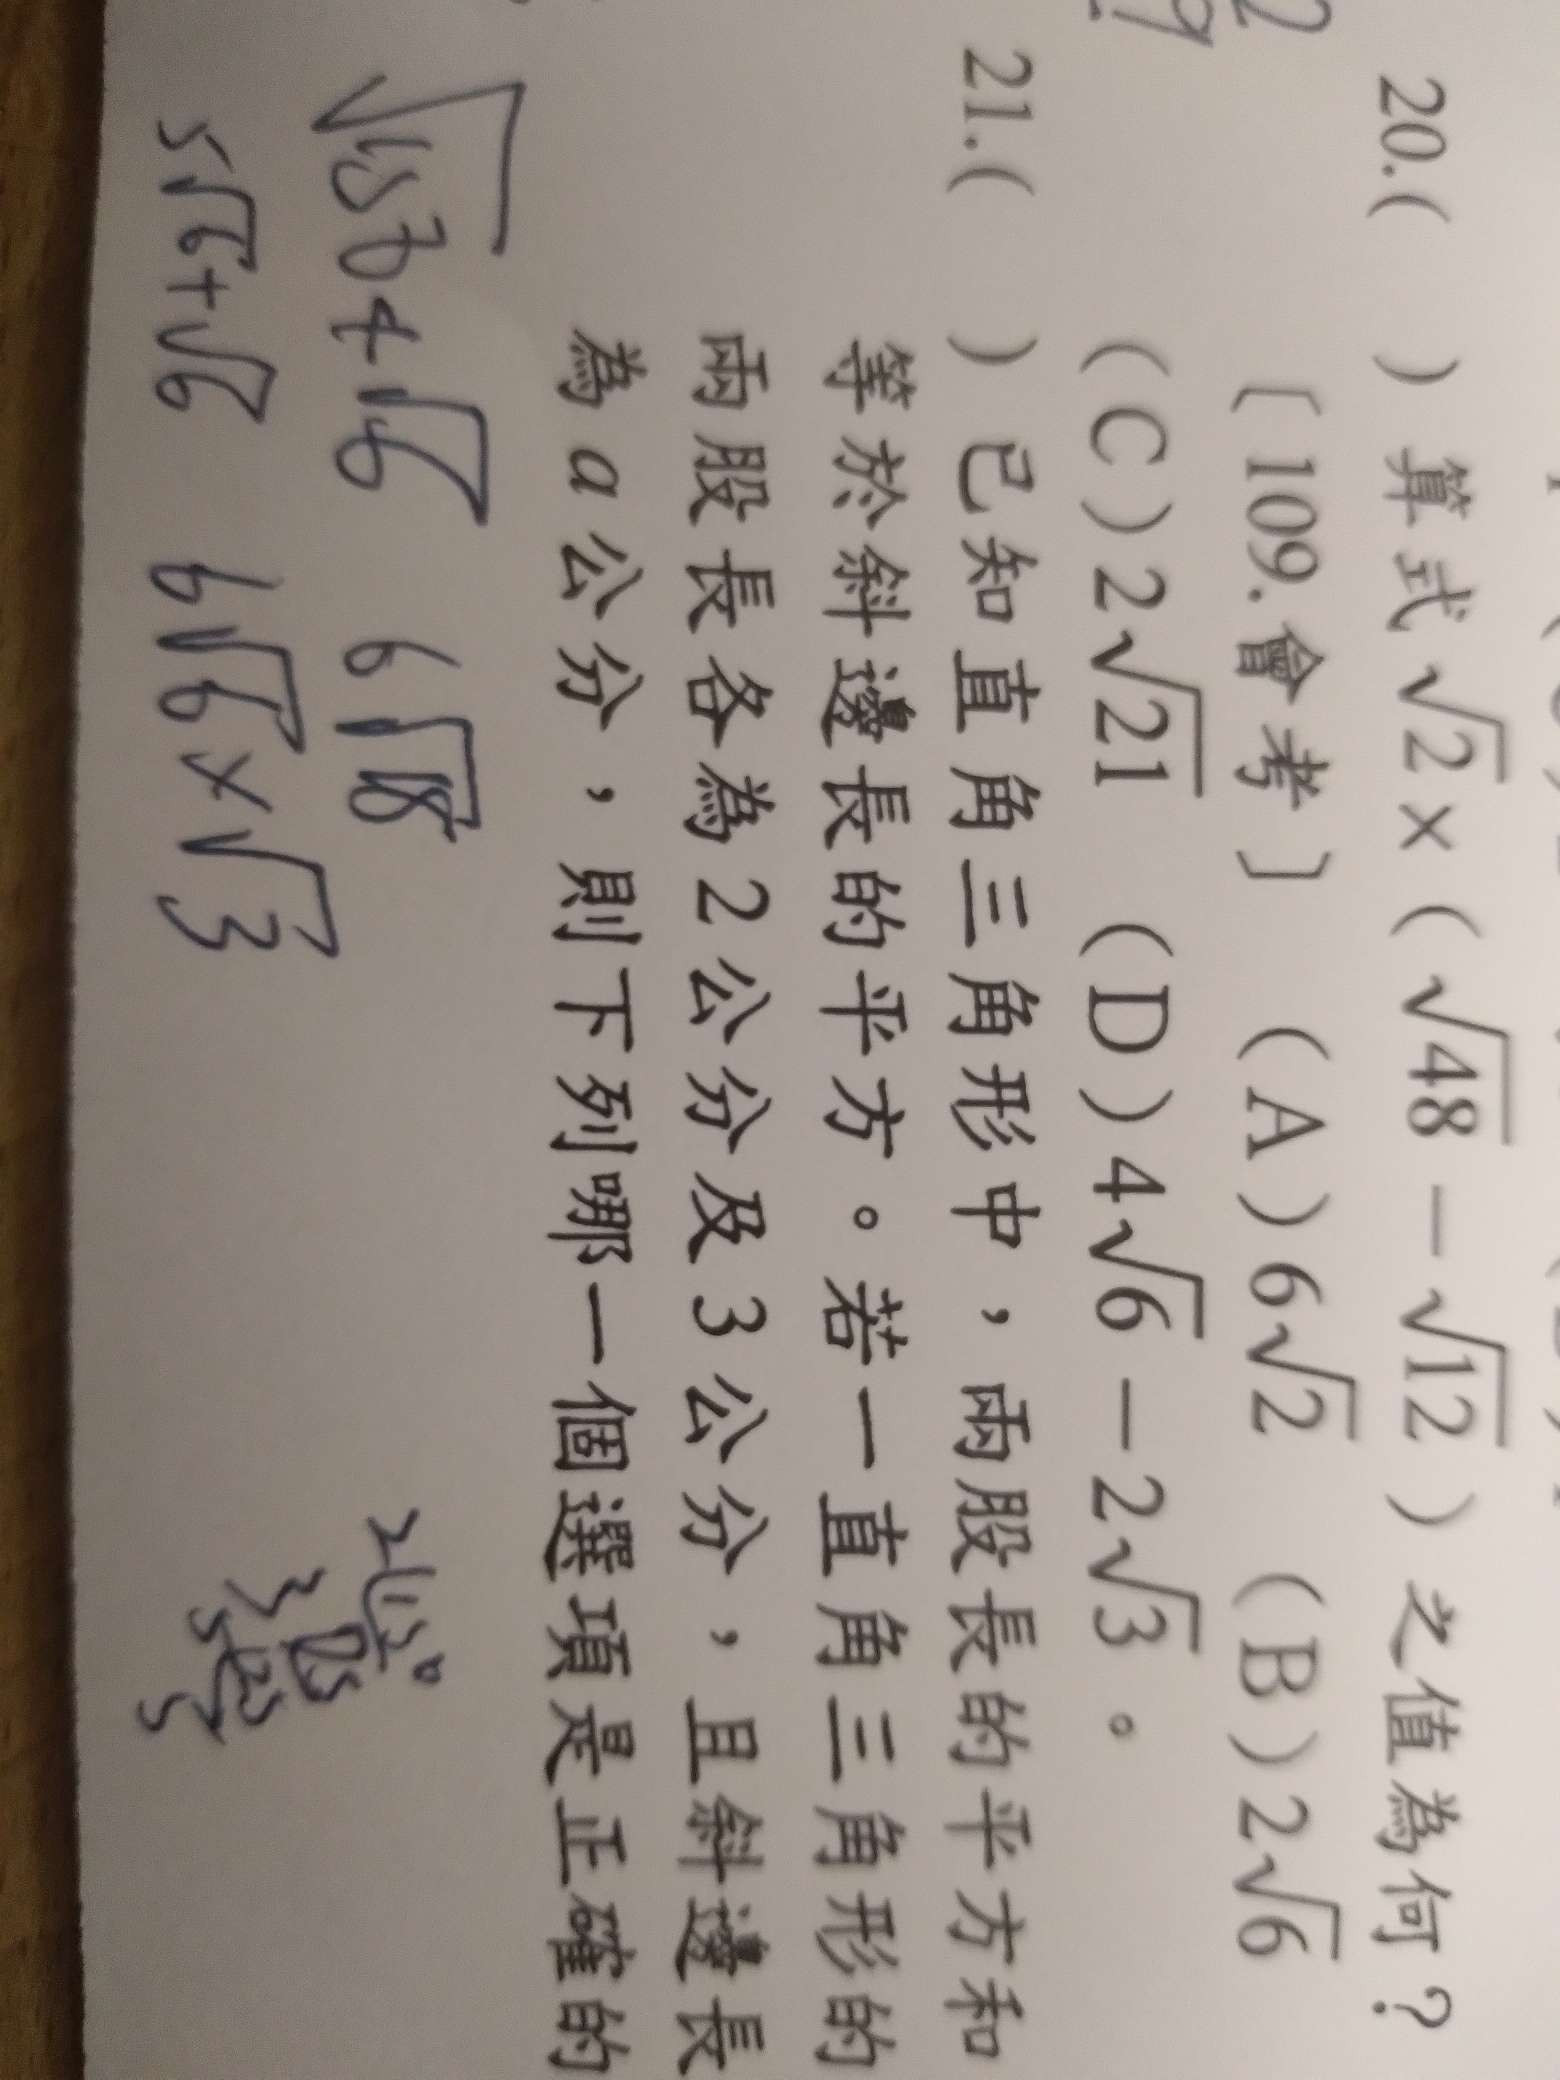 20.(　)算式√2×(√48－√12)之值為何？
〔109.會考〕　(A)6√2　(B)2√6
(C)2√21　(D)4√6－2√3。
21.(　)已知直角三角形中，兩股長的平方和
等於斜邊長的平方。若一直角三角形的
兩股長各為2公分及3公分，且斜邊長
為a公分，則下列哪一個選項是正確的
√150+√6　6√18
5√6+√6　6√6×√3